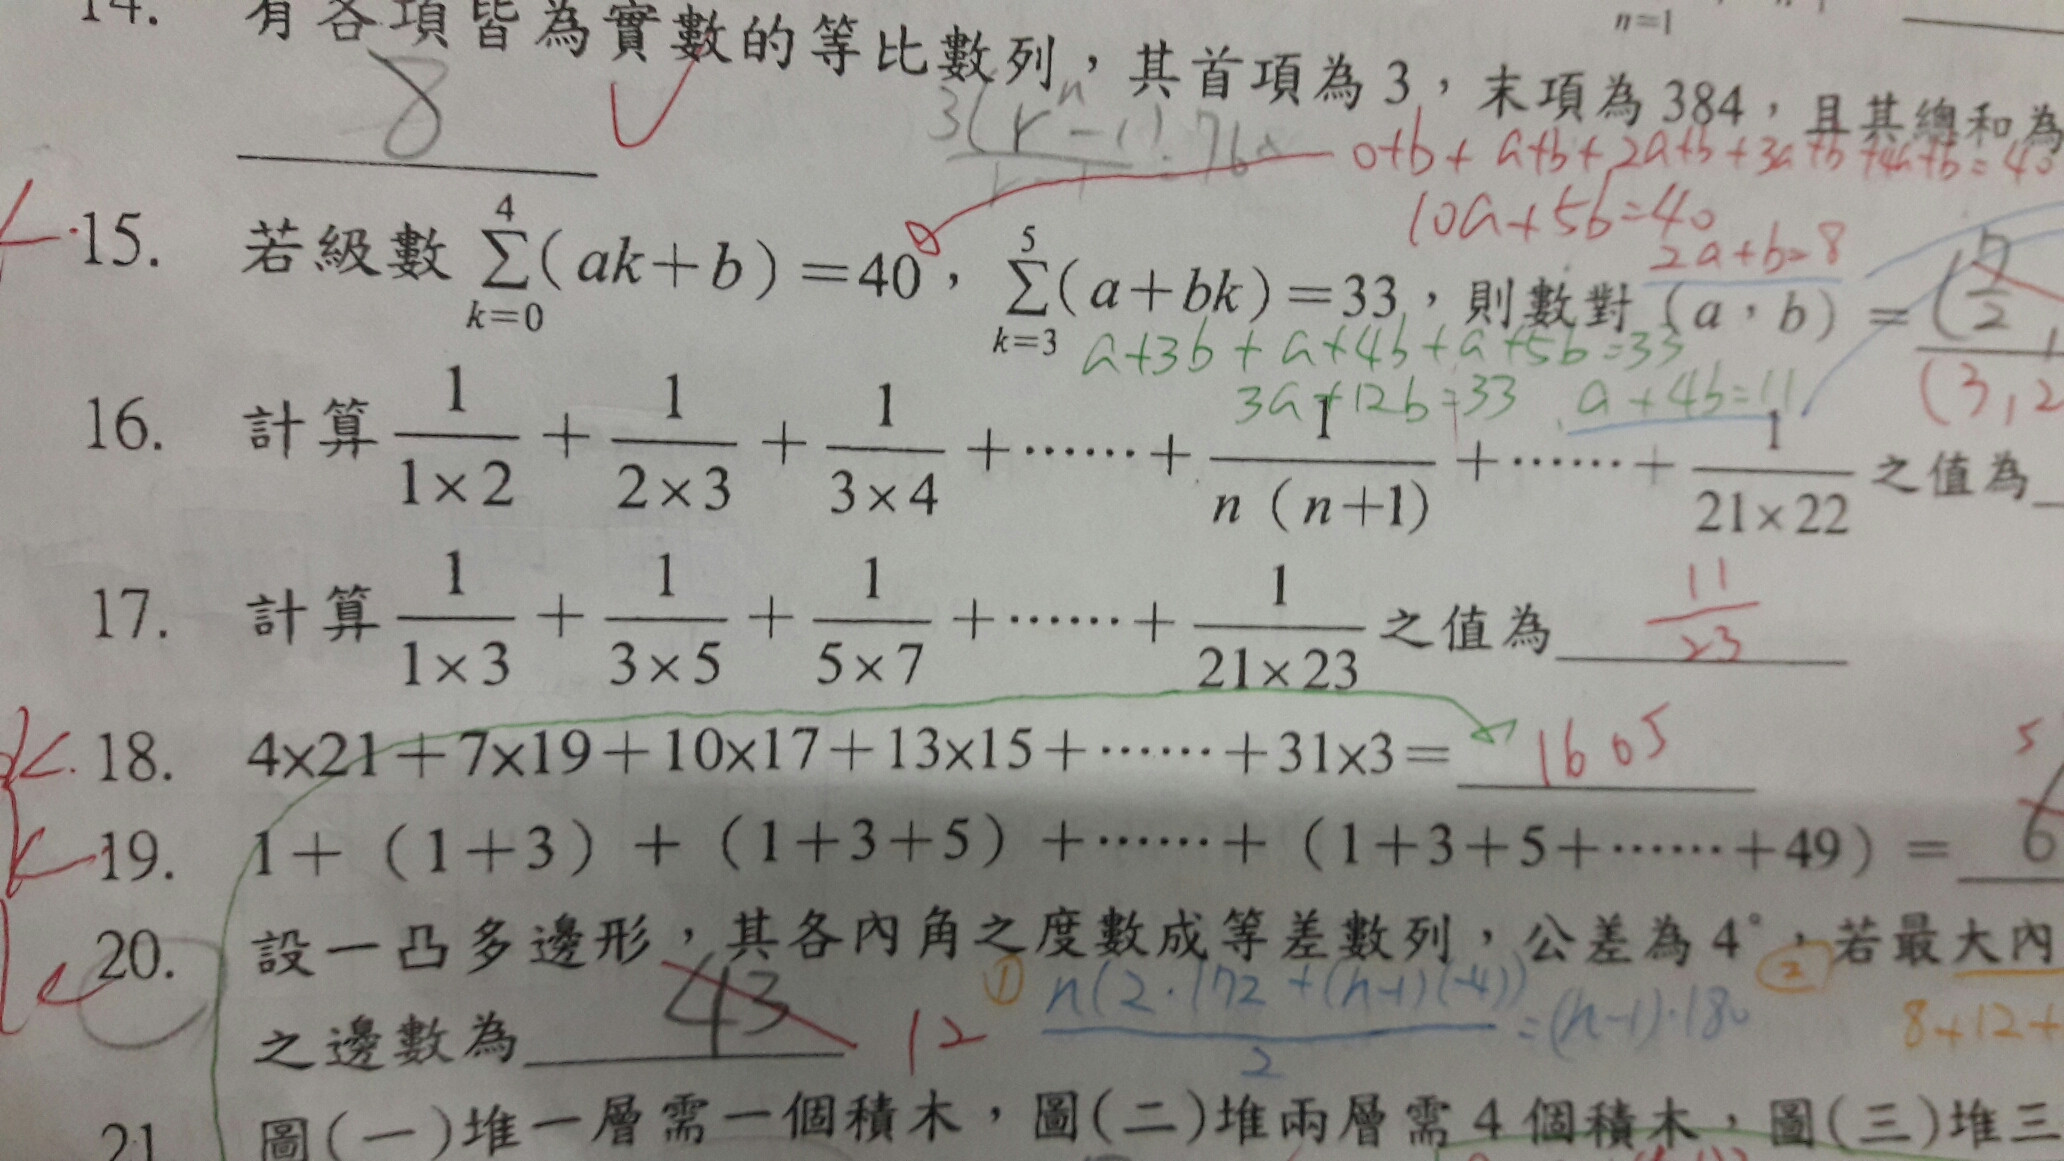 14. 有各項皆為實數的等比數列，其首項為 3，末項為 384，且其總和為
n=1
8
3(r^n-1)
0+b+a+b+2a+b+3a+b+4a+b=40
10a+5b=40
2a+b=8
15. 若級數 \sum_{k=0}^{4}(ak+b)=40，\sum_{k=3}^{5}(a+bk)=33，則數對（a，b）=
(3,2
a+3b+a+4b+a+5b=33
3a+12b=33 a+4b=11
16. 計算 1/(1×2)+1/(2×3)+1/(3×4)+……+1/(n（n+1）)+……+1/(21×22) 之值為
17. 計算 1/(1×3)+1/(3×5)+1/(5×7)+……+1/(21×23) 之值為 11/23
18. 4×21+7×19+10×17+13×15+……+31×3= 1605
19. 1+（1+3）+（1+3+5）+……+（1+3+5+……+49）= 6
5
20. 設一凸多邊形，其各內角之度數成等差數列，公差為 4°，若最大內
之邊數為 43 12
① n(2·172+(n-1)(-4))/2=(n-1)·180
②
8+12+
21 圖(一)堆一層需一個積木，圖(二)堆兩層需 4 個積木，圖(三)堆三